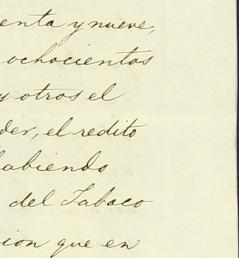 enta y nueve,
ochocientos
y otros el
der, el redito
habiendo
del Tabaco
cion que en